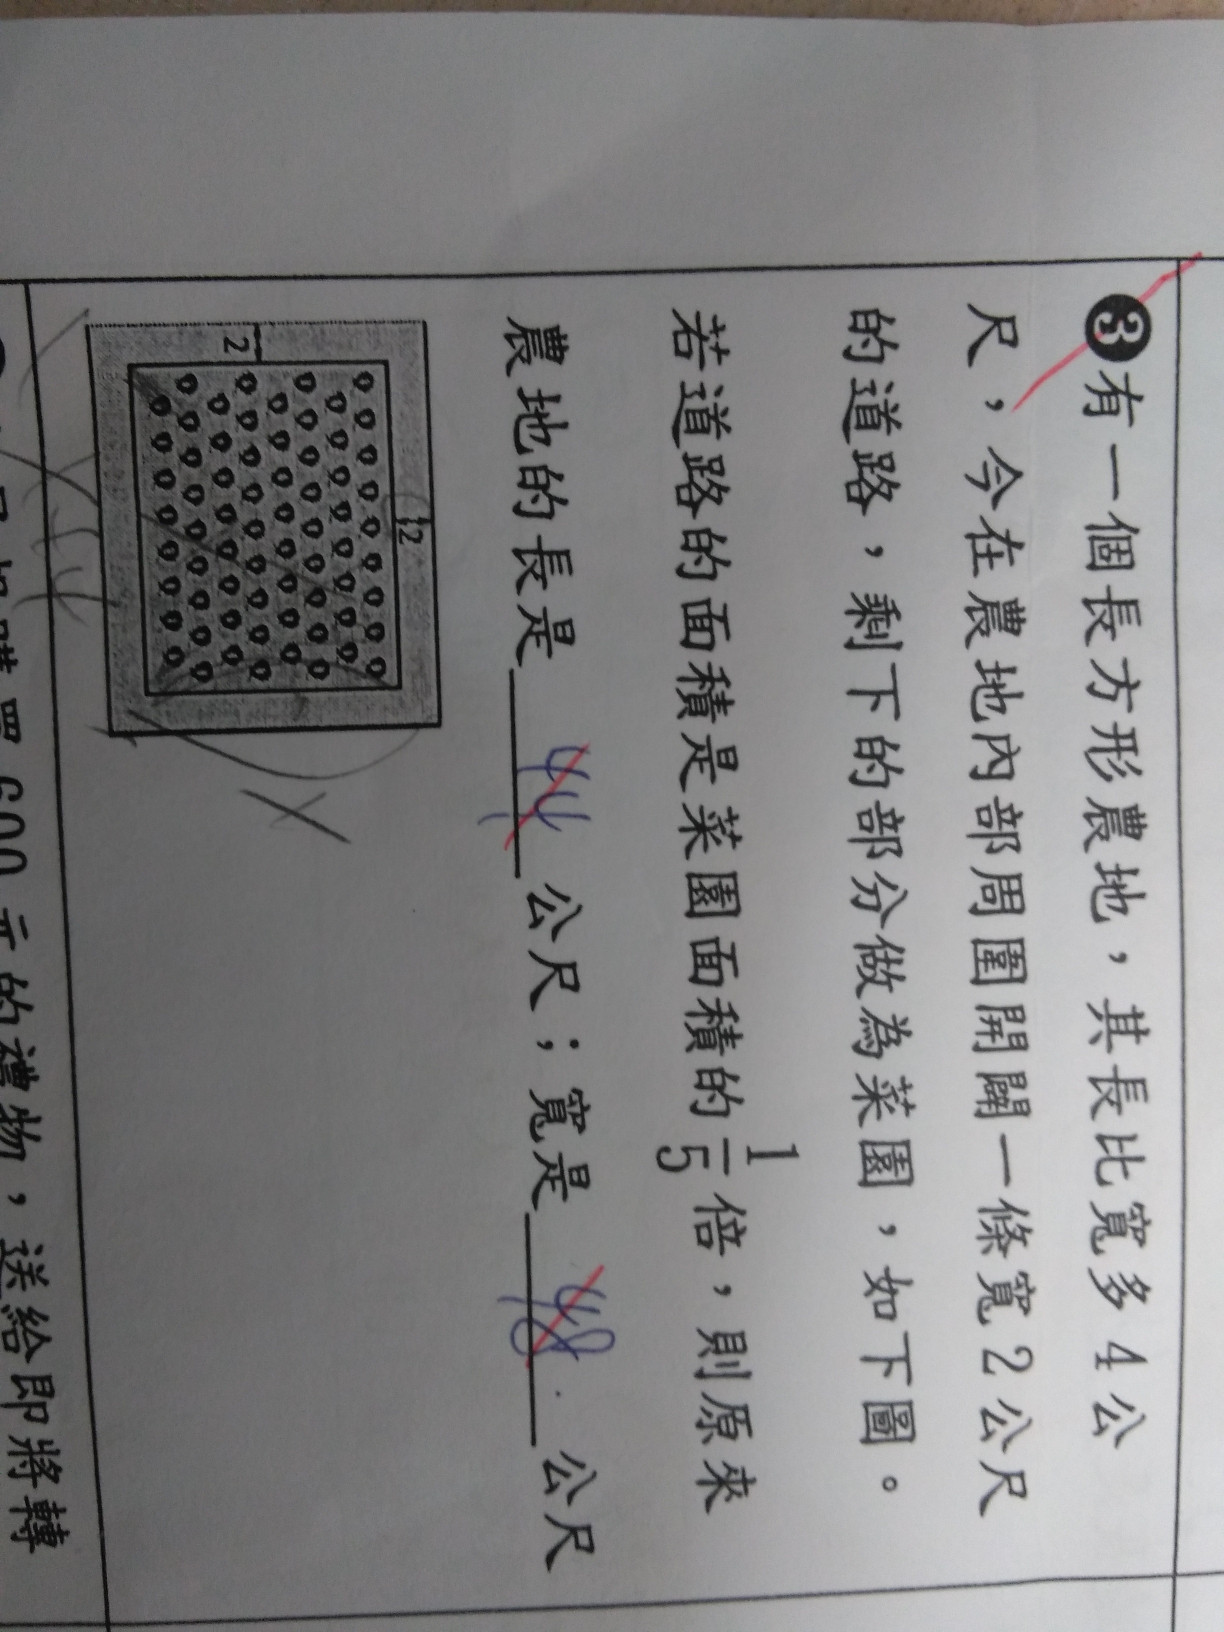 ❸有一個長方形農地，其長比寬多4公
尺，今在農地內部周圍開闢一條寬2公尺
的道路，剩下的部分做為菜園，如下圖。
若道路的面積是菜園面積的1/5倍，則原來
農地的長是44公尺；寬是48公尺
2
2
600元的禮物，送給即將轉